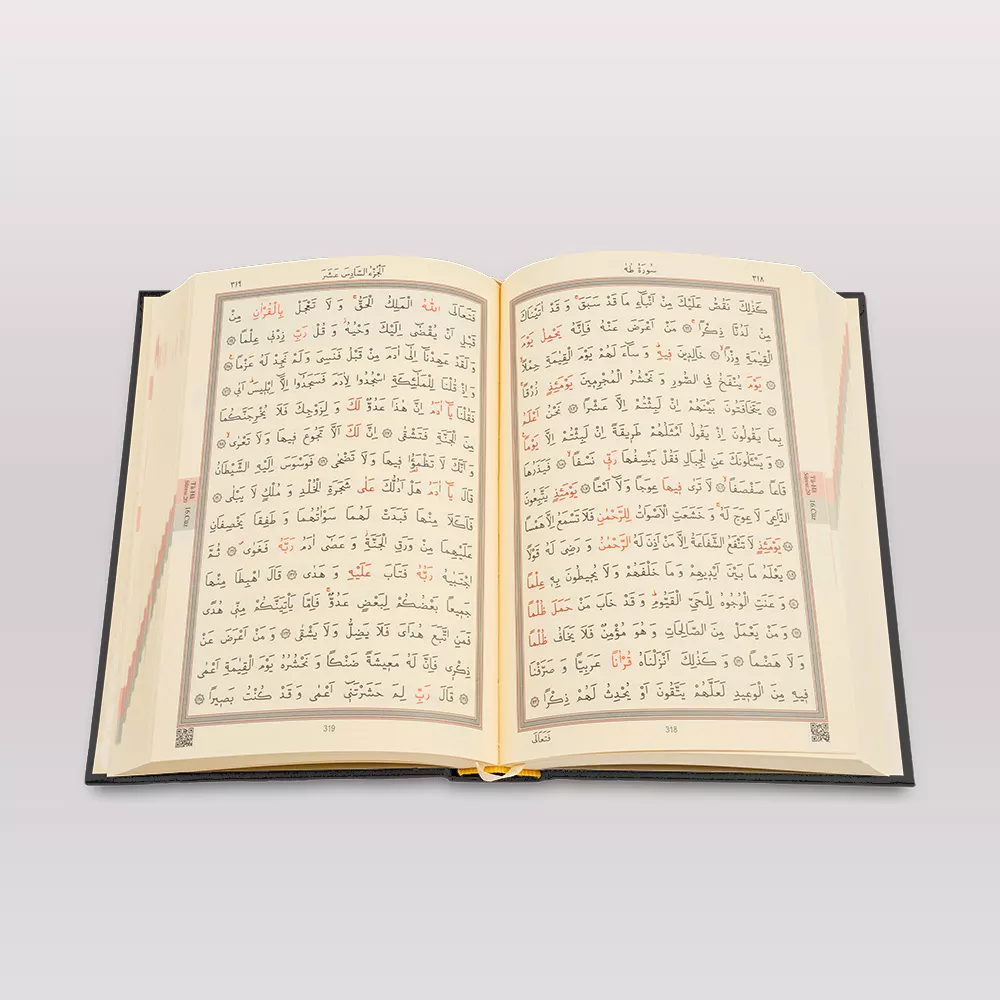 سُورَةُ طٰهٰ
٣١٨
كَذٰلِكَ نَقُصُّ عَلَيْكَ مِنْ اَنْبَٓاءِ مَا قَدْ سَبَقَۚ وَ قَدْ اٰتَيْنَاكَ
مِنْ لَدُنَّا ذِكْرًاۚ مَنْ اَعْرَضَ عَنْهُ فَاِنَّهُ يَحْمِلُ يَوْمَ
الْقِيٰمَةِ وِزْرًاۙ خَالِدٖينَ فٖيهِۜ وَ سَٓاءَ لَهُمْ يَوْمَ الْقِيٰمَةِ حِمْلًاۙ
يَوْمَ يُنْفَخُ فِى الصُّورِ وَ نَحْشُرُ الْمُجْرِمٖينَ يَوْمَئِذٍ زُرْقًاۚ
يَتَخَافَتُونَ بَيْنَهُمْ اِنْ لَبِثْتُمْ اِلَّا عَشْرًا نَحْنُ اَعْلَمُ
بِمَا يَقُولُونَ اِذْ يَقُولُ اَمْثَلُهُمْ طَرٖيقَةً اِنْ لَبِثْتُمْ اِلَّا يَوْمًا
وَ يَسْـَٔلُونَكَ عَنِ الْجِبَالِ فَقُلْ يَنْسِفُهَا رَبّٖى نَسْفًاۙ فَيَذَرُهَا
قَاعًا صَفْصَفًاۙ لَا تَرٰى فٖيهَا عِوَجًا وَ لَٓا اَمْتًاۜ يَوْمَئِذٍ يَتَّبِعُونَ
الدَّاعِىَ لَا عِوَجَ لَهُۚ وَ خَشَعَتِ الْاَصْوَاتُ لِلرَّحْمٰنِ فَلَا تَسْمَعُ اِلَّا هَمْسًا
يَوْمَئِذٍ لَا تَنْفَعُ الشَّفَاعَةُ اِلَّا مَنْ اَذِنَ لَهُ الرَّحْمٰنُ وَ رَضِىَ لَهُ قَوْلًا
يَعْلَمُ مَا بَيْنَ اَيْدٖيهِمْ وَ مَا خَلْفَهُمْ وَ لَا يُحٖيطُونَ بِهٖ عِلْمًا
وَ عَنَتِ الْوُجُوهُ لِلْحَىِّ الْقَيُّومِۜ وَ قَدْ خَابَ مَنْ حَمَلَ ظُلْمًا
وَ مَنْ يَعْمَلْ مِنَ الصَّالِحَاتِ وَ هُوَ مُؤْمِنٌ فَلَا يَخَافُ ظُلْمًا
وَ لَا هَضْمًا وَ كَذٰلِكَ اَنْزَلْنَاهُ قُرْاٰنًا عَرَبِيًّا وَ صَرَّفْنَا
فٖيهِ مِنَ الْوَعٖيدِ لَعَلَّهُمْ يَتَّقُونَ اَوْ يُحْدِثُ لَهُمْ ذِكْرًا
318
فَتَعَالَى
Tâ-Hâ
Sûresi:20
16.Cüz
اَلْجُزْءُ السَّادِسَ عَشَرَ
٣١٩
فَتَعَالَى اللّٰهُ الْمَلِكُ الْحَقُّۚ وَ لَا تَعْجَلْ بِالْقُرْاٰنِ مِنْ
قَبْلِ اَنْ يُقْضٰٓى اِلَيْكَ وَحْيُهُۘ وَ قُلْ رَبِّ زِدْنٖى عِلْمًا
وَ لَقَدْ عَهِدْنَٓا اِلٰٓى اٰدَمَ مِنْ قَبْلُ فَنَسِىَ وَ لَمْ نَجِدْ لَهُ عَزْمًاۚ
وَ اِذْ قُلْنَا لِلْمَلٰٓئِكَةِ اسْجُدُوا لِاٰدَمَ فَسَجَدُٓوا اِلَّٓا اِبْلٖيسَۜ اَبٰى
فَقُلْنَا يَٓا اٰدَمُ اِنَّ هٰذَا عَدُوٌّ لَكَ وَ لِزَوْجِكَ فَلَا يُخْرِجَنَّكُمَا
مِنَ الْجَنَّةِ فَتَشْقٰى اِنَّ لَكَ اَلَّا تَجُوعَ فٖيهَا وَ لَا تَعْرٰىۙ
وَ اَنَّكَ لَا تَظْمَؤُ۬ا فٖيهَا وَ لَا تَضْحٰى فَوَسْوَسَ اِلَيْهِ الشَّيْطَانُ
قَالَ يَٓا اٰدَمُ هَلْ اَدُلُّكَ عَلٰى شَجَرَةِ الْخُلْدِ وَ مُلْكٍ لَا يَبْلٰى
فَاَكَلَا مِنْهَا فَبَدَتْ لَهُمَا سَوْاٰتُهُمَا وَ طَفِقَا يَخْصِفَانِ
عَلَيْهِمَا مِنْ وَرَقِ الْجَنَّةِۘ وَ عَصٰٓى اٰدَمُ رَبَّهُ فَغَوٰىۖ ثُمَّ
اجْتَبٰيهُ رَبُّهُ فَتَابَ عَلَيْهِ وَ هَدٰى قَالَ اهْبِطَا مِنْهَا
جَمٖيعًا بَعْضُكُمْ لِبَعْضٍ عَدُوٌّۚ فَاِمَّا يَأْتِيَنَّكُمْ مِنّٖى هُدًى
فَمَنِ اتَّبَعَ هُدَاىَ فَلَا يَضِلُّ وَ لَا يَشْقٰى وَ مَنْ اَعْرَضَ عَنْ
ذِكْرٖى فَاِنَّ لَهُ مَعٖيشَةً ضَنْكًا وَ نَحْشُرُهُ يَوْمَ الْقِيٰمَةِ اَعْمٰى
قَالَ رَبِّ لِمَ حَشَرْتَنٖٓى اَعْمٰى وَ قَدْ كُنْتُ بَصٖيرًا
319
Tâ-Hâ
Sûresi:20
16.Cüz